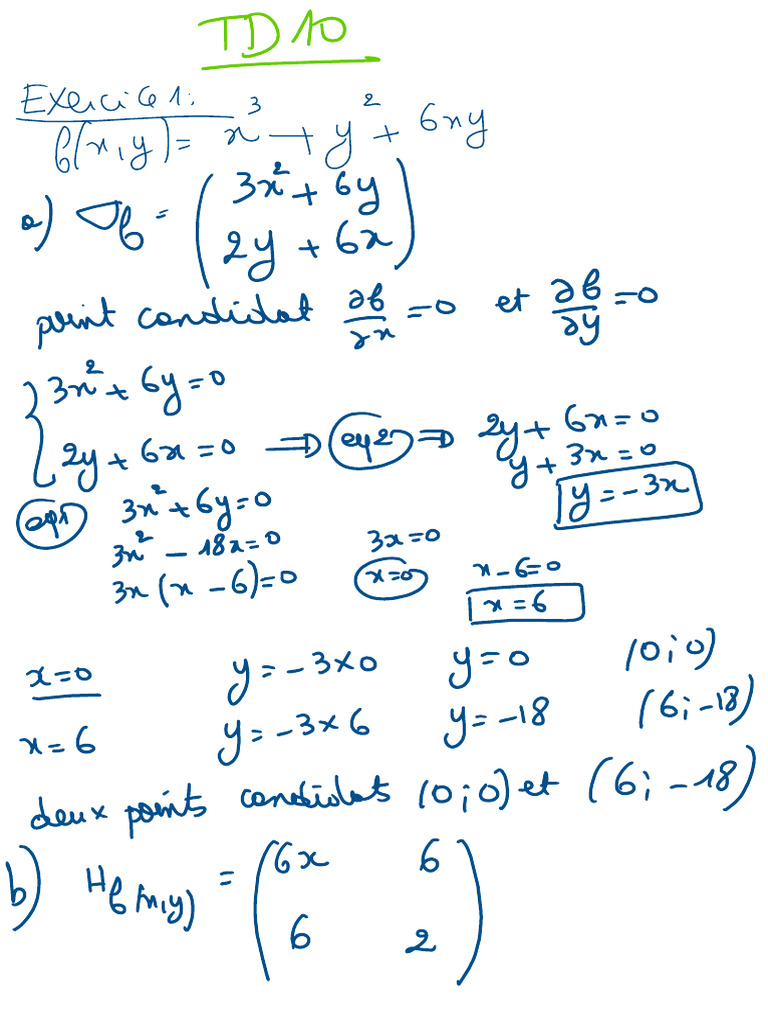 TD10
Exercice 1:
f(x,y) = x³ + y² + 6xy
a) ∇f = (3x² + 6y
2y + 6x)
point candidat ∂f/∂x = 0 et ∂f/∂y = 0
{ 3x² + 6y = 0
2y + 6x = 0 ⇒ eq2 ⇒ 2y + 6x = 0
y + 3x = 0
y = -3x
eq1 3x² + 6y = 0
3x² - 18x = 0 3x = 0
3x(x - 6) = 0 x = 0 x - 6 = 0
x = 6
x = 0 y = -3 × 0 y = 0 (0; 0)
x = 6 y = -3 × 6 y = -18 (6; -18)
deux points candidats (0; 0) et (6; -18)
b) Hf(x,y) = (6x 6
6 2)